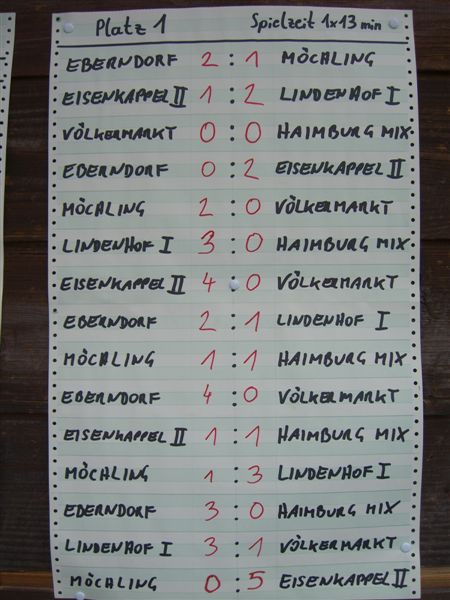 Platz 1 Spielzeit 1x13 min
EBERNDORF 2 : 1 MÖCHLING
EISENKAPPEL II 1 : 2 LINDENHOF I
VÖLKERMARKT 0 : 0 HAIMBURG MIX
EBERNDORF 0 : 2 EISENKAPPEL II
MÖCHLING 2 : 0 VÖLKERMARKT
LINDENHOF I 3 : 0 HAIMBURG MIX
EISENKAPPEL II 4 : 0 VÖLKERMARKT
EBERNDORF 2 : 1 LINDENHOF I
MÖCHLING 1 : 1 HAIMBURG MIX
EBERNDORF 4 : 0 VÖLKERMARKT
EISENKAPPEL II 1 : 1 HAIMBURG MIX
MÖCHLING 1 : 3 LINDENHOF I
EBERNDORF 3 : 0 HAIMBURG MIX
LINDENHOF I 3 : 1 VÖLKERMARKT
MÖCHLING 0 : 5 EISENKAPPEL II